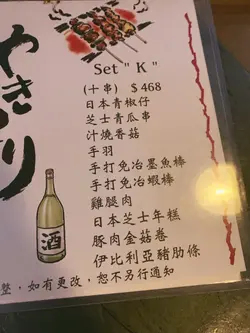 やきとり
Set " K "
(十串) $ 468
日本青椒仔
芝士青瓜串
汁燒香菇
手羽
手打免冶墨魚棒
手打免冶蝦棒
雞腿肉
日本芝士年糕
豚肉金菇卷
伊比利亞豬肋條
酒
整，如有更改，恕不另行通知